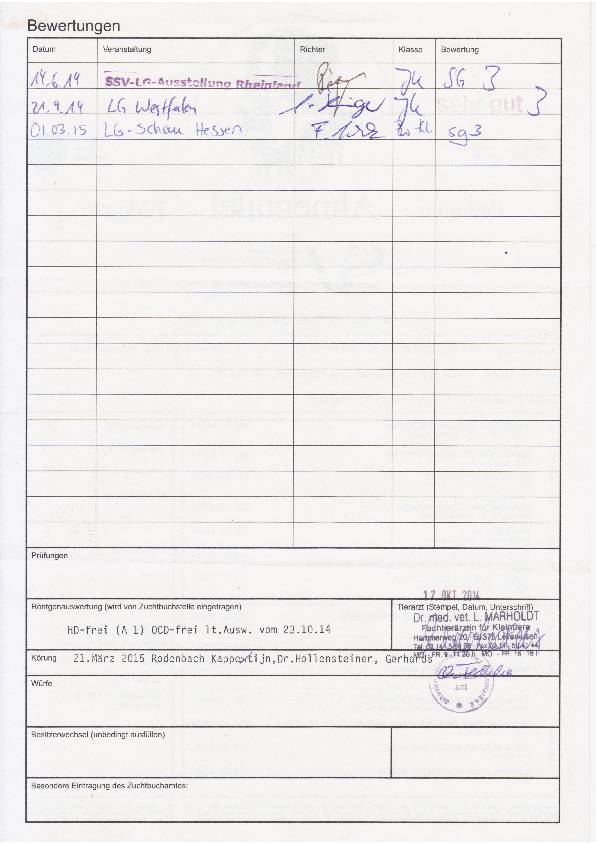 Bewertungen
Datum Veranstaltung Richter Klasse Bewertung
14.6.14 SSV-LG-Ausstellung Rheinland Jk SG 3
21.9.14 LG Westfalen Jk sehr gut 3
01.03.15 LG-Schau Hessen sg3
Prüfungen
17. OKT 2014
Röntgenauswertung (wird von Zuchtbuchstelle eingetragen) Tierarzt (Stempel, Datum, Unterschrift)
Dr. med. vet. L. MARHOLDT
HD-frei (A 1) OCD-frei lt.Ausw. vom 23.10.14 Fachtierärztin für Kleintiere
Hammerweg 20, 51375 Leverkusen
Körung 21.März 2015 Rodenbach Dr.Hollensteiner, Gerhards
Würfe
Besitzerwechsel (unbedingt ausfüllen)
Besondere Eintragung des Zuchtbuchamtes: